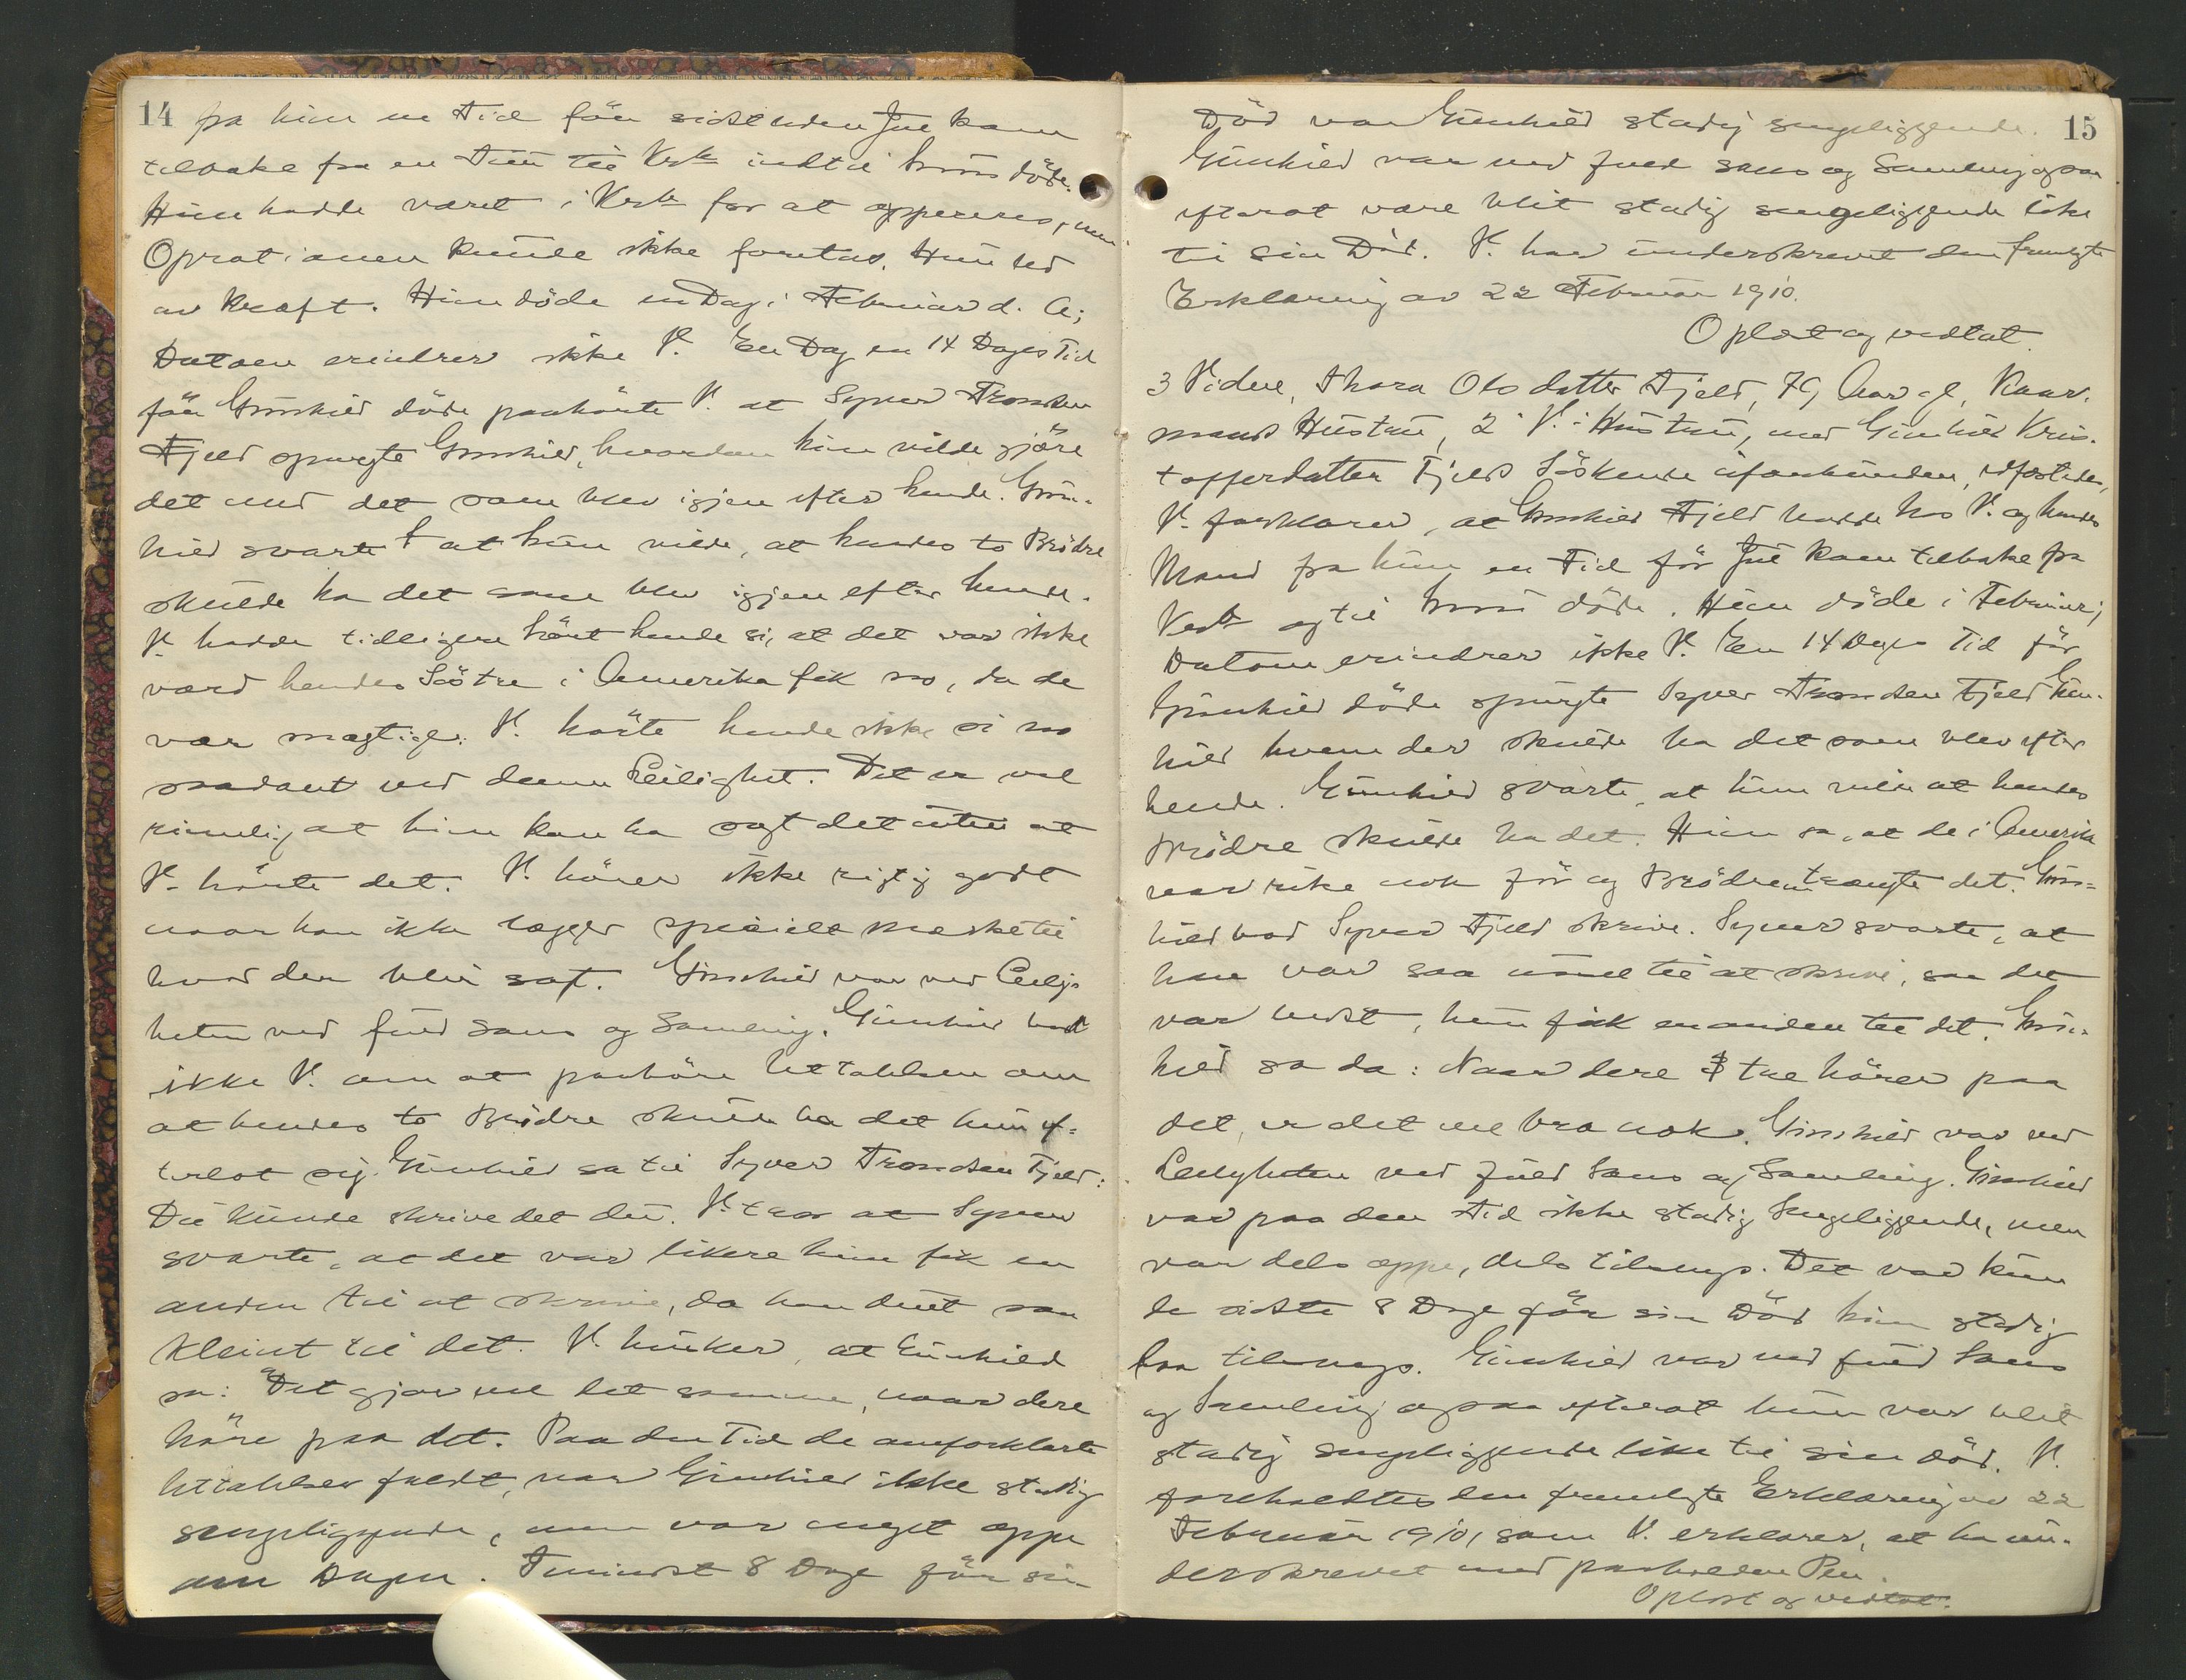 14
fra hun en Tid för sidst uden Jul kom
tilbake fra en Tur til Krk indtil hun döde.
Hun hadde været i Krk for at opereres, men
Oprationen kunde ikke foretas. Hun led
av Kræft. Hun döde en Dag i Februar d. A;
Datoen erindrer ikke V. En Dag en 14 Dages Tid
för Gunhild döde paahörte V. at Syver Trondsen
Fjeld spurgte Gunhild, hvordan hun vilde gjöre
det med det som blev igjen efter hende. Gun-
hild svarte at hun vilde, at hendes to Brödre
skulde ha det som blev igjen efter hende.
V. hadde tidligere hört hende si, at det var ikke
værd hendes Söstre i Amerika fik no, da de
var mægtige. V. hörte hende ikke si no
saadant ved denne Leilighet. Det er vel
rimelig at hun kan ha sagt det uten at
V. hörte det. V. hörer ikke rigtig godt
naar han ikke lægger specielt Mærke til
hvad der blir sagt. Gunhild var ved Leilig-
heten ved fuld Sans og Samling. Gunhild bad
ikke V. om at paahöre Uttalelsen om
at hendes to Brödre skulde ha det hun ef-
terlot sig. Gunhild sa til Syver Trondsen Fjeld:
Du kunde skrive det du. V. tror at Syver
svarte, at det var likere hun fik en
anden til at skrive, da han duet saa
kleint til det. V. husker, at Gunhild
sa: Det gjör vel det samme, naar dere
höre paa det. Paa den Tid de omforklarte
Uttalelser faldt, var Gunhild ikke stadig
sengeliggende, men var meget oppe
om Dagen. Tmindst 8 Dage för sin
15
Död var Gunhild stadig sengeliggende.
Gunhild var ved fuld Sans og Samling ogsaa
efterat være blit stadig sengeliggende like
til sin Död. V. har underskrevet den fremlagte
Erklæring av 22 Februar 1910.
Oplæst og vedtat.
3 Vidne, Thora Olsdatter Fjeld, 79 Aar gl, Kaar-
mands Hustru, 2' V.'s Hustru, med Gunhild Kris-
tofferdatter Fjelds Söskende uforbunden, edfæstedes,
V. forklarer, at Gunhild Fjeld hadde hos V. og hendes
Mand fra hun en Tid för Jul kom tilbake fra
Krk og til hun döde. Hun döde i Februar;
Datoen erindrer ikke V. En 14 Dages Tid för
Gunhild döde spurgte Syver Trondsen Fjeld Gun-
hild hvem der skulde ha det som blev efter
hende. Gunhild svarte, at hun vilde at hendes
Brödre skulde ha det. Hun sa, at de i Amerika
var rike nok för og Brödrene trængte det. Gun-
hild bad Syver Fjeld skrive. Syver svarte, at
han var saa ussel til at skrive, saa det
var bedst, hun fik en anden til det. Gun-
hild sa da: Naar dere 3 tre hörer paa
det, er det vel bra nok. Gunhild var ved
Leiligheten ved fuld Sans og Samling. Gunhild
var paa den Tid ikke stadig Sengeliggende, men
var dels oppe, dels tilsengs. Det var kun
de sidste 8 Dage för sin Död hun stadig
laa tilsengs. Gunhild var ved fuld Sans
og Samling ogsaa efterat hun var blit
stadig sengeliggende like til sin död. V.
foreholdtes den fremlagte Erklæring av 22
Februar 1910, som V. erklærer, at ha un-
derskrevet med paaholden Pen.
Oplæst og vedtat.